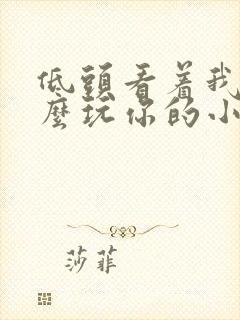 低頭看着我
麽玩你的小
莎菲